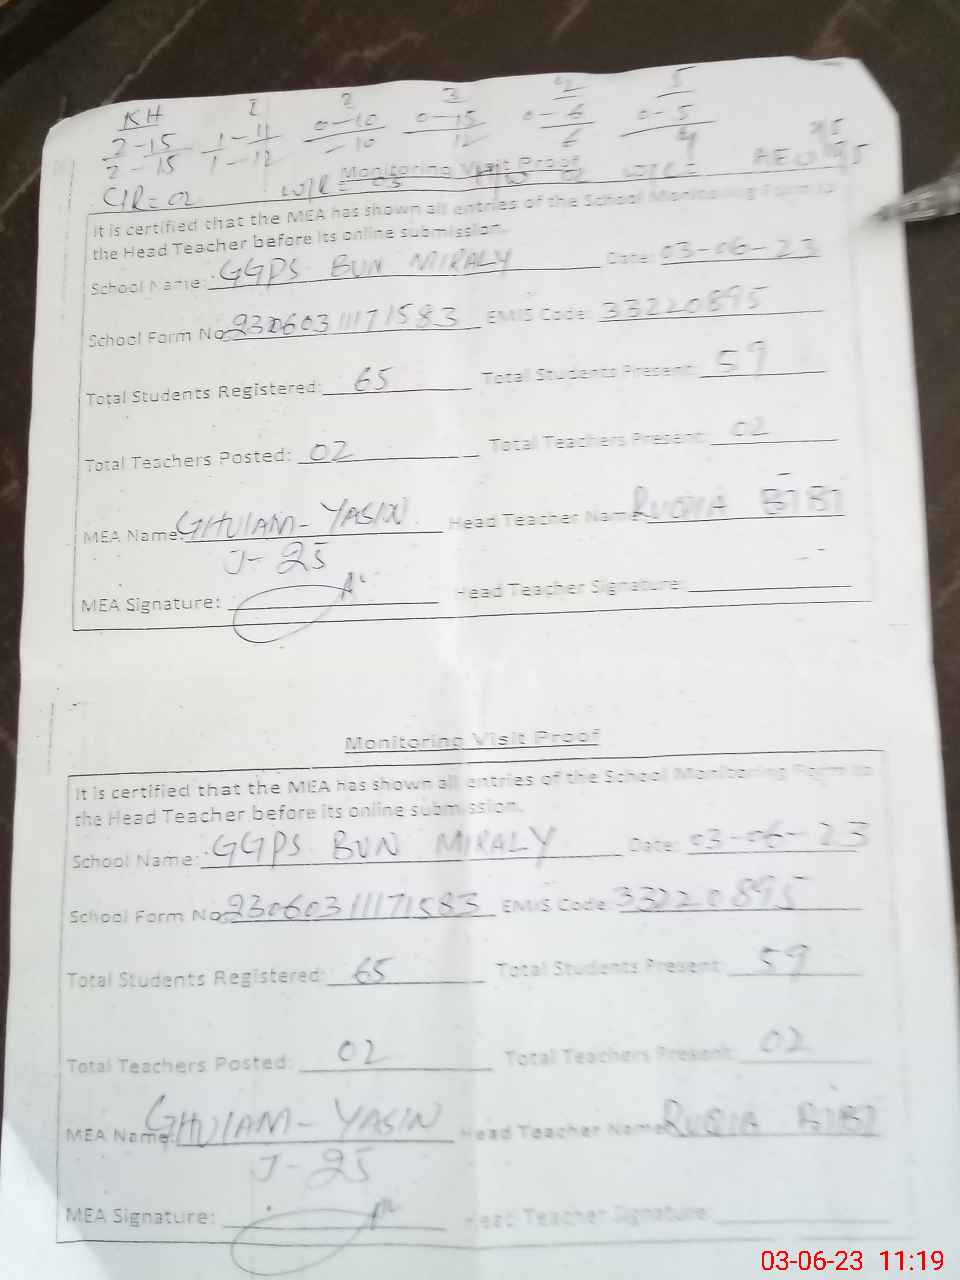 KH 1 2 3 4 5
2-15 1-11 0-10 0-15 0-6 0-5
2-15 1-12 -10 12 6 4
Monitoring Visit Proof
CIR=02
It is certified that the MEA has shown all entries of the School Monitoring Form to
the Head Teacher before its online submission.
School Name: GGPS BUN MIRALY Date: 03-06-23
School Form No 23060311171583 EMIS Code: 33220895
Total Students Registered: 65 Total Students Present: 59
Total Teachers Posted: 02 Total Teachers Present: 02
MEA Name: GHULAM-YASIN Head Teacher Name RUQIA BIBI
J-25
MEA Signature: Head Teacher Signature:
Monitoring Visit Proof
It is certified that the MEA has shown all entries of the School Monitoring Form to
the Head Teacher before its online submission.
School Name: GGPS BUN MIRALY Date: 03-06-23
School Form No 23060311171583 EMIS Code: 33220895
Total Students Registered: 65 Total Students Present: 59
Total Teachers Posted: 02 Total Teachers Present: 02
MEA Name: GHULAM-YASIN Head Teacher Name RUQIA BIBI
J-25
MEA Signature: Head Teacher Signature:
03-06-23 11:19